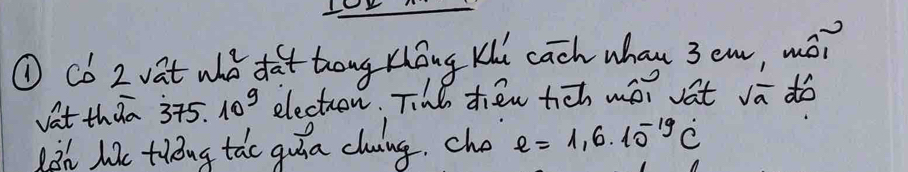 ① Có 2 vật nhỏ đặt trong không khí cách nhau 3 cm, mỗi
vật thừa 375.10⁹ electron. Tính điện tích mỗi vật và độ
lớn lực tương tác giữa chúng. cho e = 1,6.10⁻¹⁹ C